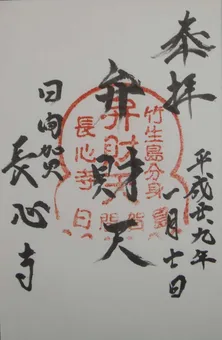 奉拝
平成廿九年
一月七日
弁財天
竹生島分身
弁財天
長心寺
日向
長心寺